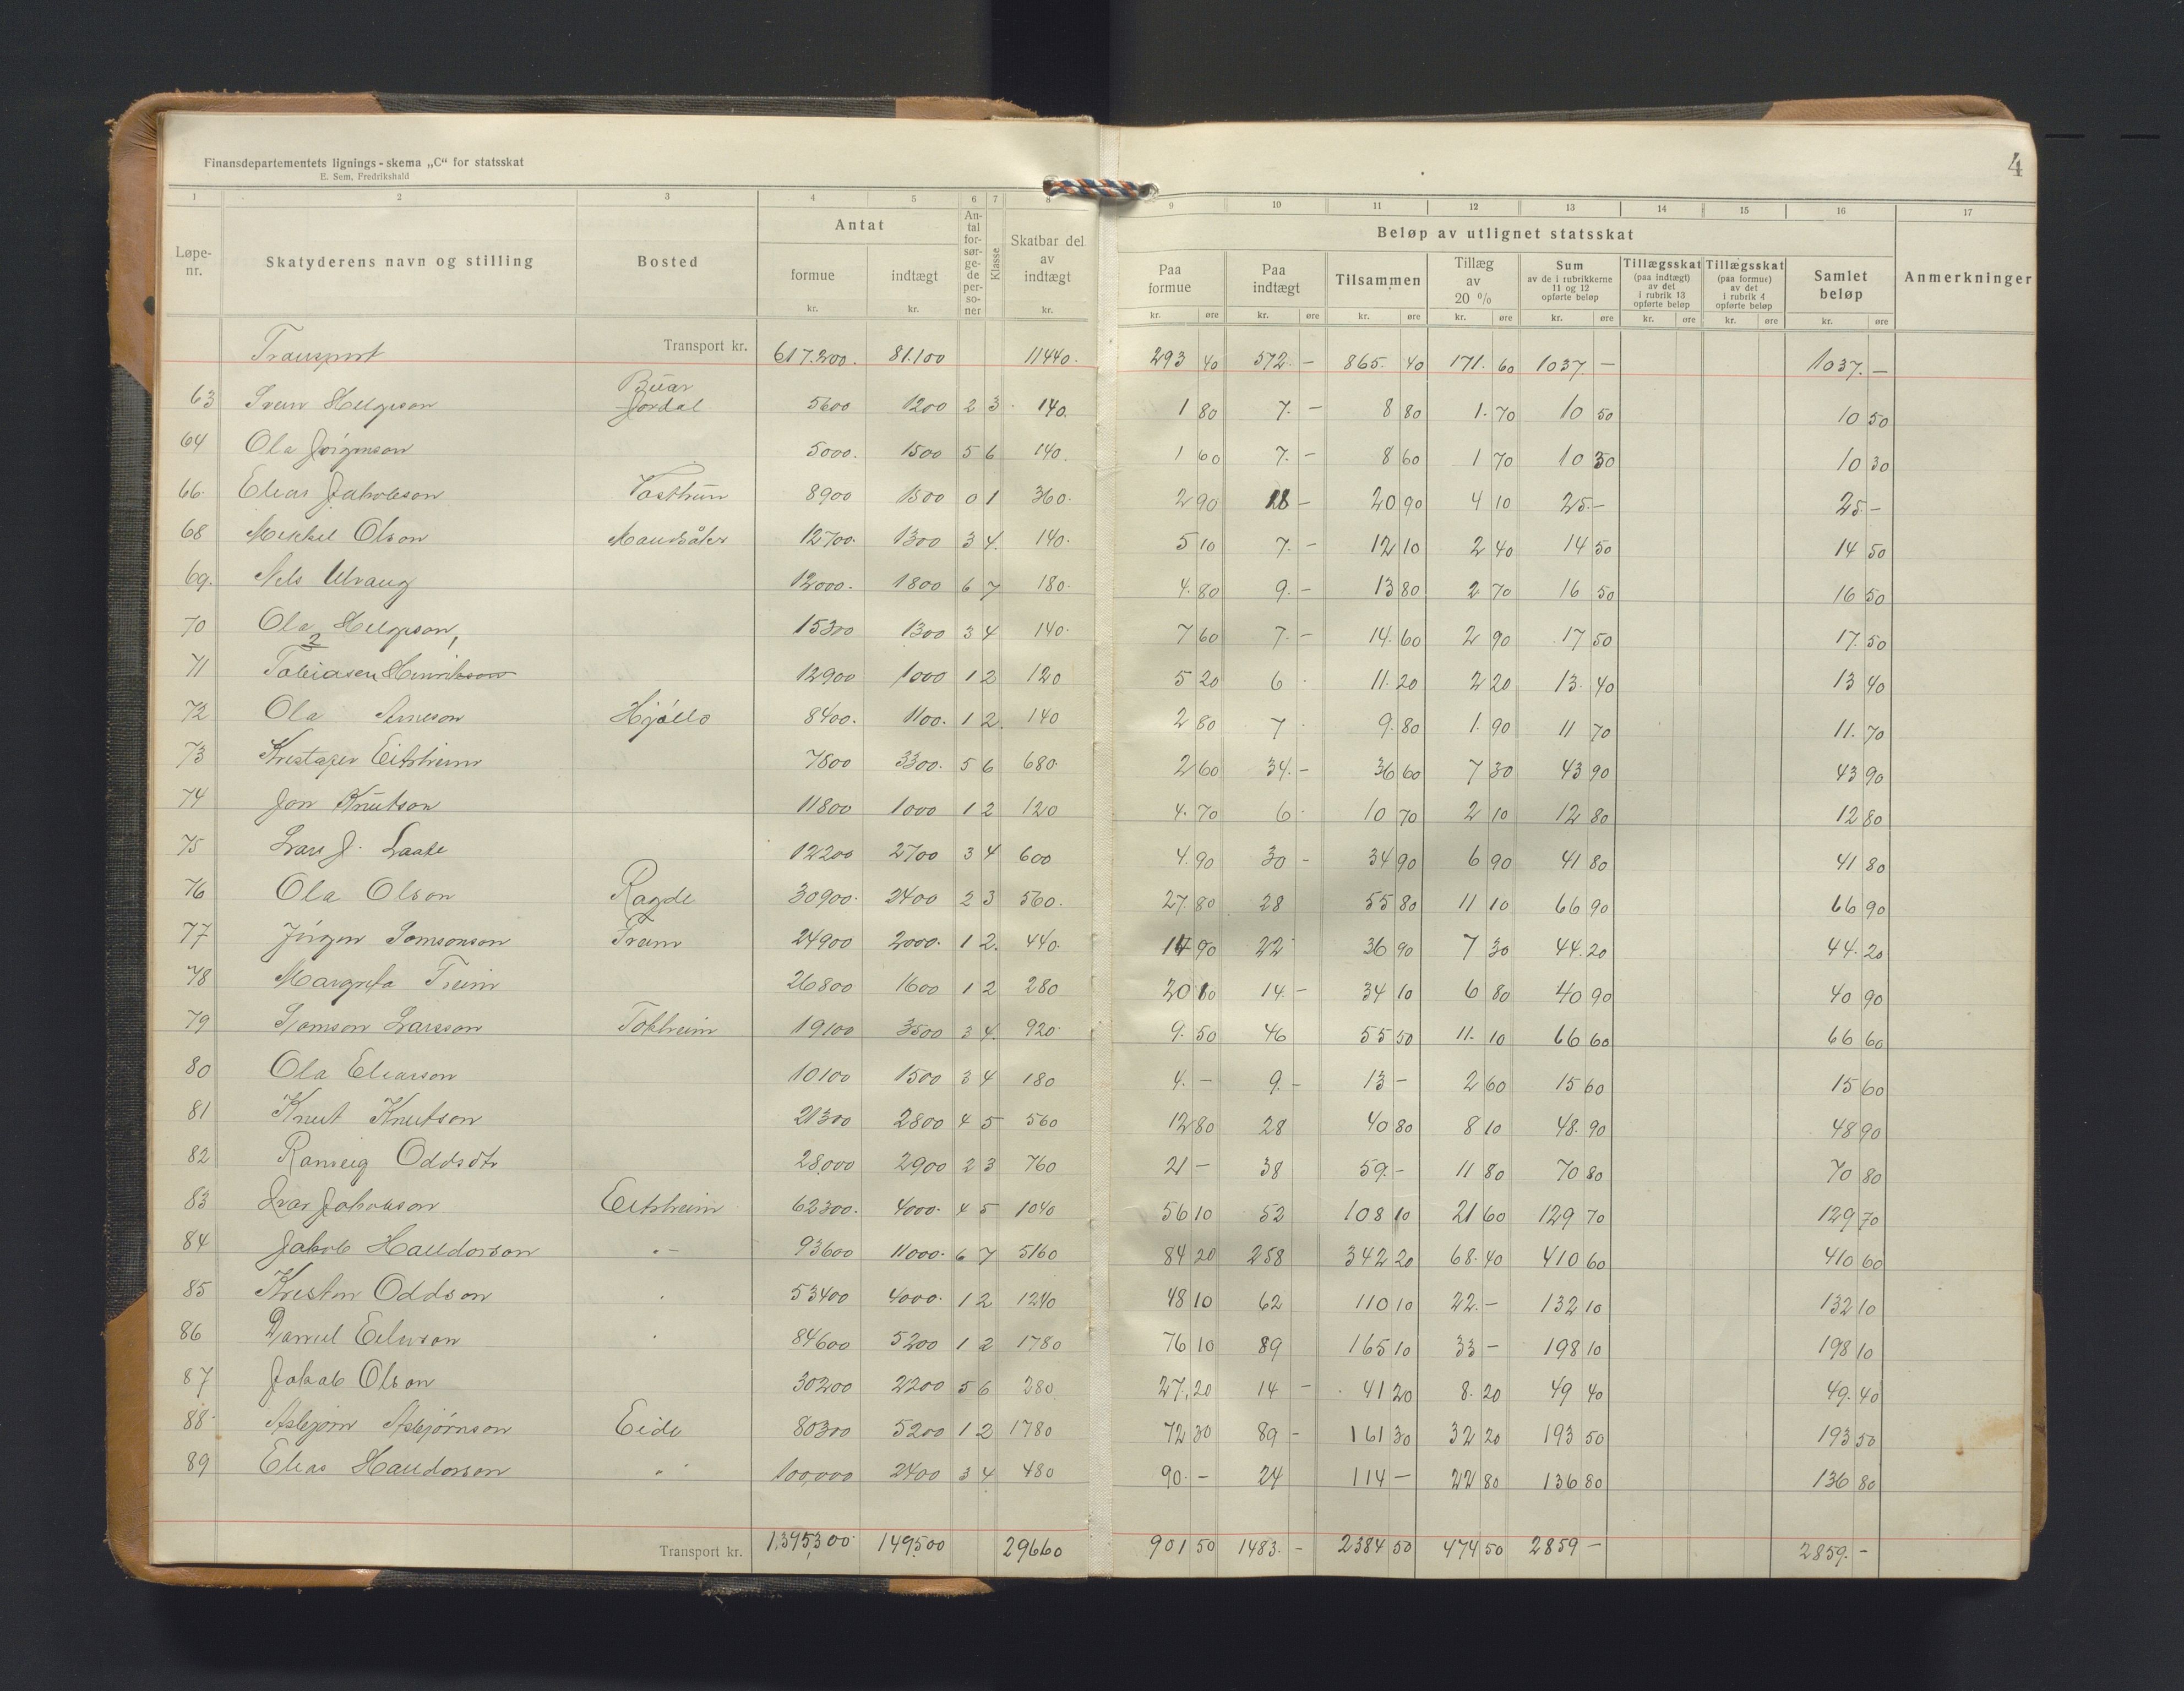 Finansdepartementets lignings-skema „C“ for statsskat
E. Sem, Fredrikshald
4
1 2 3 4 5 6 7 8 9 10 11 12 13 14 15 16 17
Løpe-nr. Skatyderens navn og stilling Bosted Antat formue kr. indtægt kr. Antal forsørgede personer Klasse Skatbar del av indtægt kr. Beløp av utlignet statsskat Paa formue kr. øre Paa indtægt kr. øre Tilsammen kr. øre Tillæg av 20 % kr. øre Sum av de i rubrikkerne 11 og 12 opførte beløp kr. øre Tillægsskat (paa indtægt) av det i rubrik 13 opførte beløp kr. øre Tillægsskat (paa formue) av det i rubrik 4 opførte beløp kr. øre Samlet beløp kr. øre Anmerkninger
Transport Transport kr. 617.200. 81.100 11440. 293 40 572. - 865. 40 171. 60 1037 - 1037. -
Buar
63 Svein Helgeson Jordal 5600 1200 2 3 140. 1 80 7. - 8 80 1. 70 10 50 10 50
64 Ola Jørgenson 5000. 1500 5 6 140. 1 60 7. - 8 60 1 70 10 30 10 30
66. Elias Jakobson Vasthun 8900 1300 0 1 360. 2 90 18 - 20 90 4 10 25. - 25 -
68 Mikkel Olson Mandsåker 12700. 1300 3 4. 140. 5 10 7. - 12 10 2 40 14 50 14 50
69. Nels Ulvang 12000. 1800 6 7 180. 4. 80 9. - 13 80 2 70 16 50 16 50
70 Ola Helgeson 15300 1300 3 4 140. 7 60 7. - 14. 60 2 90 17 50 17. 50
71 Tobiasen Henrikson 12900 1000 1 2 120 5 20 6 11. 20 2 20 13. 40 13 40
72 Ola Arneson Hjøllo 8400. 1100. 1 2. 140 2 80 7 9. 80 1. 90 11 70 11. 70
73 Kristafer Eitrheim 7800 3300. 5 6 680. 2 60 34. - 36 60 7 30 43 90 43 90
74 Jon Knutson 11800 1000 1 2 120 4. 70 6 10 70 2 10 12 80 12 80
75 Lars J. Laate 12200 2700 3 4 600 4. 90 30 - 34 90 6 90 41 80 41 80
76 Ola Olson Ragde 30900. 2400 2 3 560. 27. 80 28 55 80 11 10 66 90 66 90
77 Jörgen Samsonson Traen 24900 2000. 1 2. 440. 14 90 22 36 90 7 30 44. 20 44. 20
78 Margreta Freim 26800 1600 1 2 280 20 10 14 - 34 10 6 80 40 90 40 90
79 Samson Larsson Tokheim 19100 3500 3 4. 920. 9. 50 46 55 50 11. 10 66 60 66 60
80 Ola Eliasson 10100 1500 3 4 180 4. - 9. - 13 - 2 60 15 60 15 60
81 Knut Knutson 21300 2800 4 5 560 12 80 28 40 80 8 10 48. 90 48 90
82 Ranveig Oddsdtr 28000 2900 2 3 760 21 - 38 59. - 11 80 70 80 70 80
83 Ivar Jakobson Eitrheim 62300. 4000. 4 5 1040 56 10 52 108 10 21 60 129 70 129 70
84 Jakob Haldorson " - 93600 11000. 6 7 5160 84 20 258 342 20 68. 40 410 60 410 60
85 Kristen Oddson 53400 4000. 1 2 1240 48 10 62 110 10 22. - 132 10 132 10
86 Daniel Eilivson 84600 5200 1 2 1780 76 10 89 165 10 33 - 198 10 198 10
87 Jakob Olson 30200 2200 5 6 280 27. 20 14 - 41 20 8. 20 49 40 49. 40
88 Asbjørn Asbjørnson Eide 80300 5200 1 2 1780 72 30 89 - 161 30 32 20 193 50 193 50
89 Elias Haldorson " 100,000 2400 3 4 480 90 - 24 114 - 22 80 136 80 136 80
Transport kr. 1,395,300 149500 29660 901 50 1483. - 2384 50 474 50 2859 - 2859. -